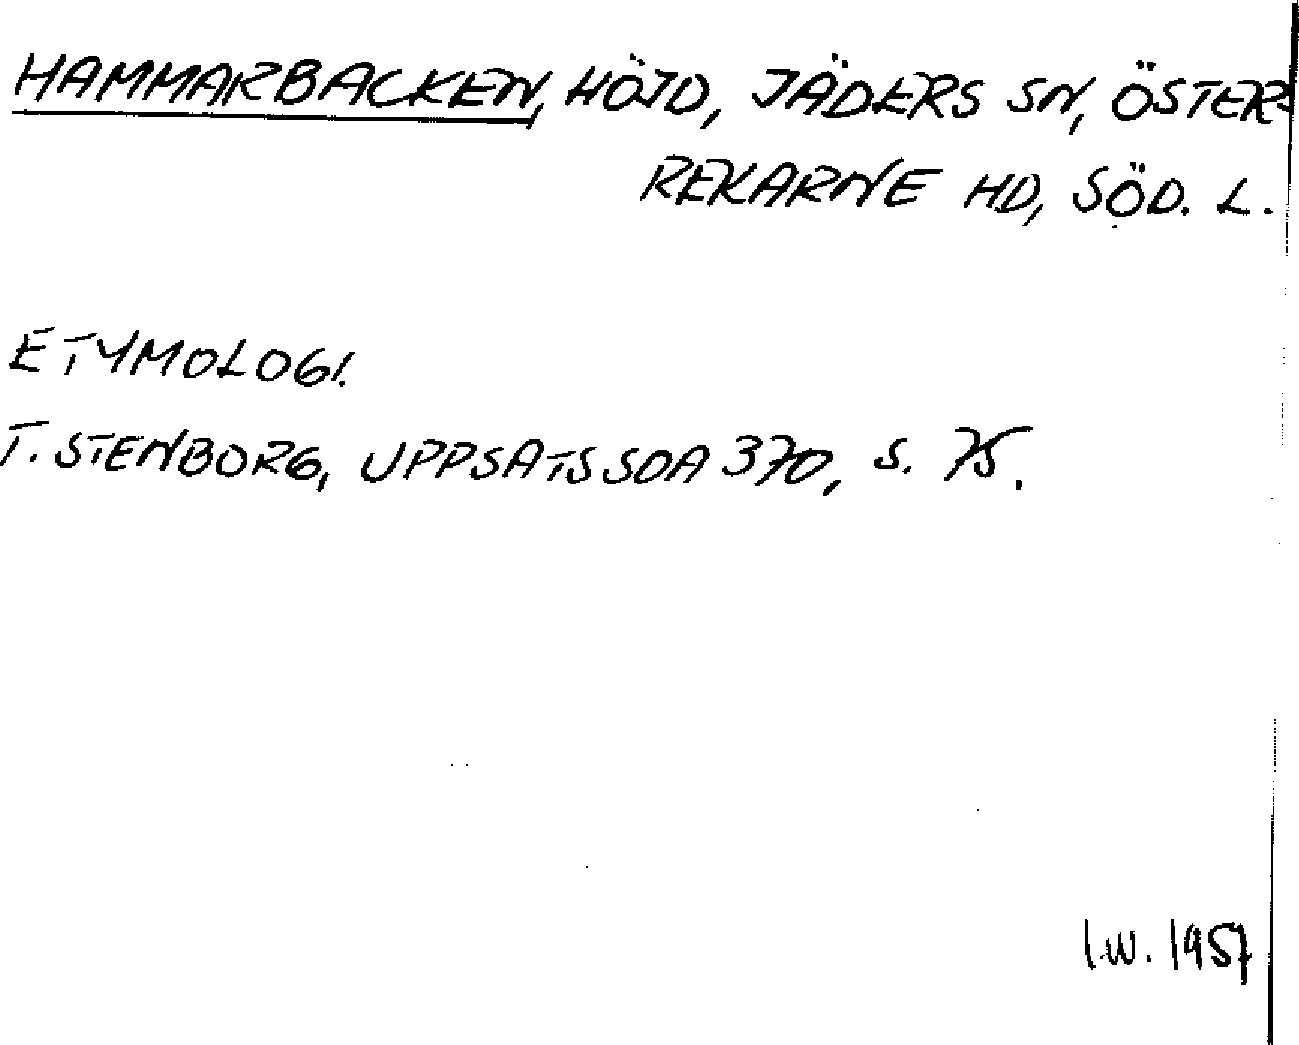 HAMMARBACKEN, HÖJD, JÄDERS SN, ÖSTER-
REKARNE HD, SÖD. L.
ETYMOLOGI.
T. STENBORG, UPPSATS SOA 370, S. 75.
I.W. 1957